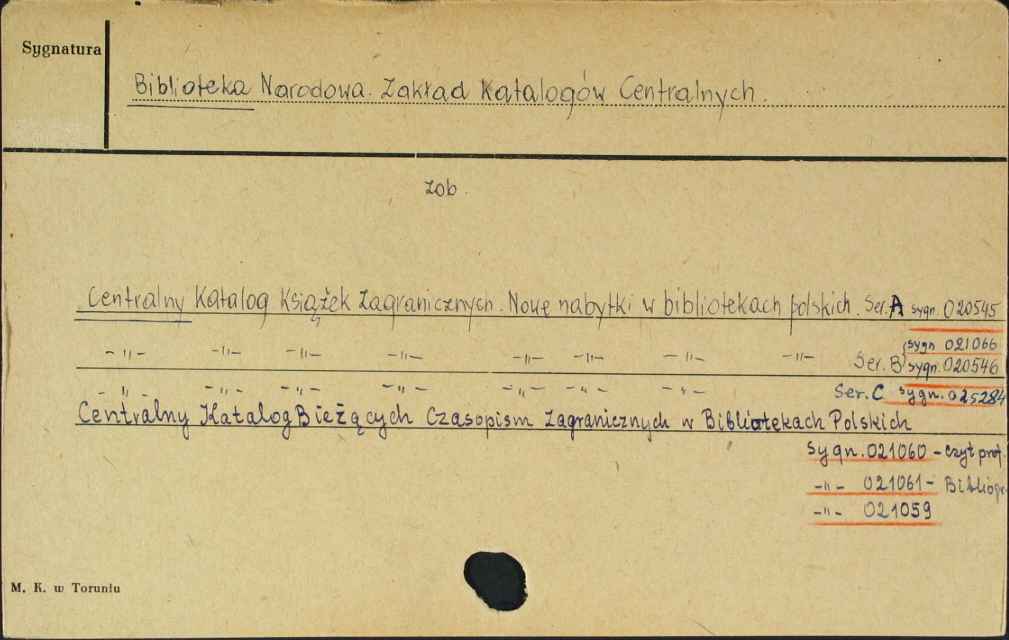 Sygnatura
Biblioteka Narodowa. Zakład Katalogów Centralnych.
zob.
Centralny Katalog Książek Zagranicznych. Nowe nabytki w bibliotekach polskich. Ser. A sygn. 020545
sygn 021066
-"- -"- -"- -"- -"- -"- -"- -"- Ser. B sygn. 020546
-"- -"- -"- -"- -"- -"- -"- Ser. C sygn. 025284
Centralny Katalog Bieżących Czasopism Zagranicznych w Bibliotekach Polskich
sygn. 021060 - czyt prof.
-"- 021061 - Bibliogr
-"- 021059
M. K. w Toruniu